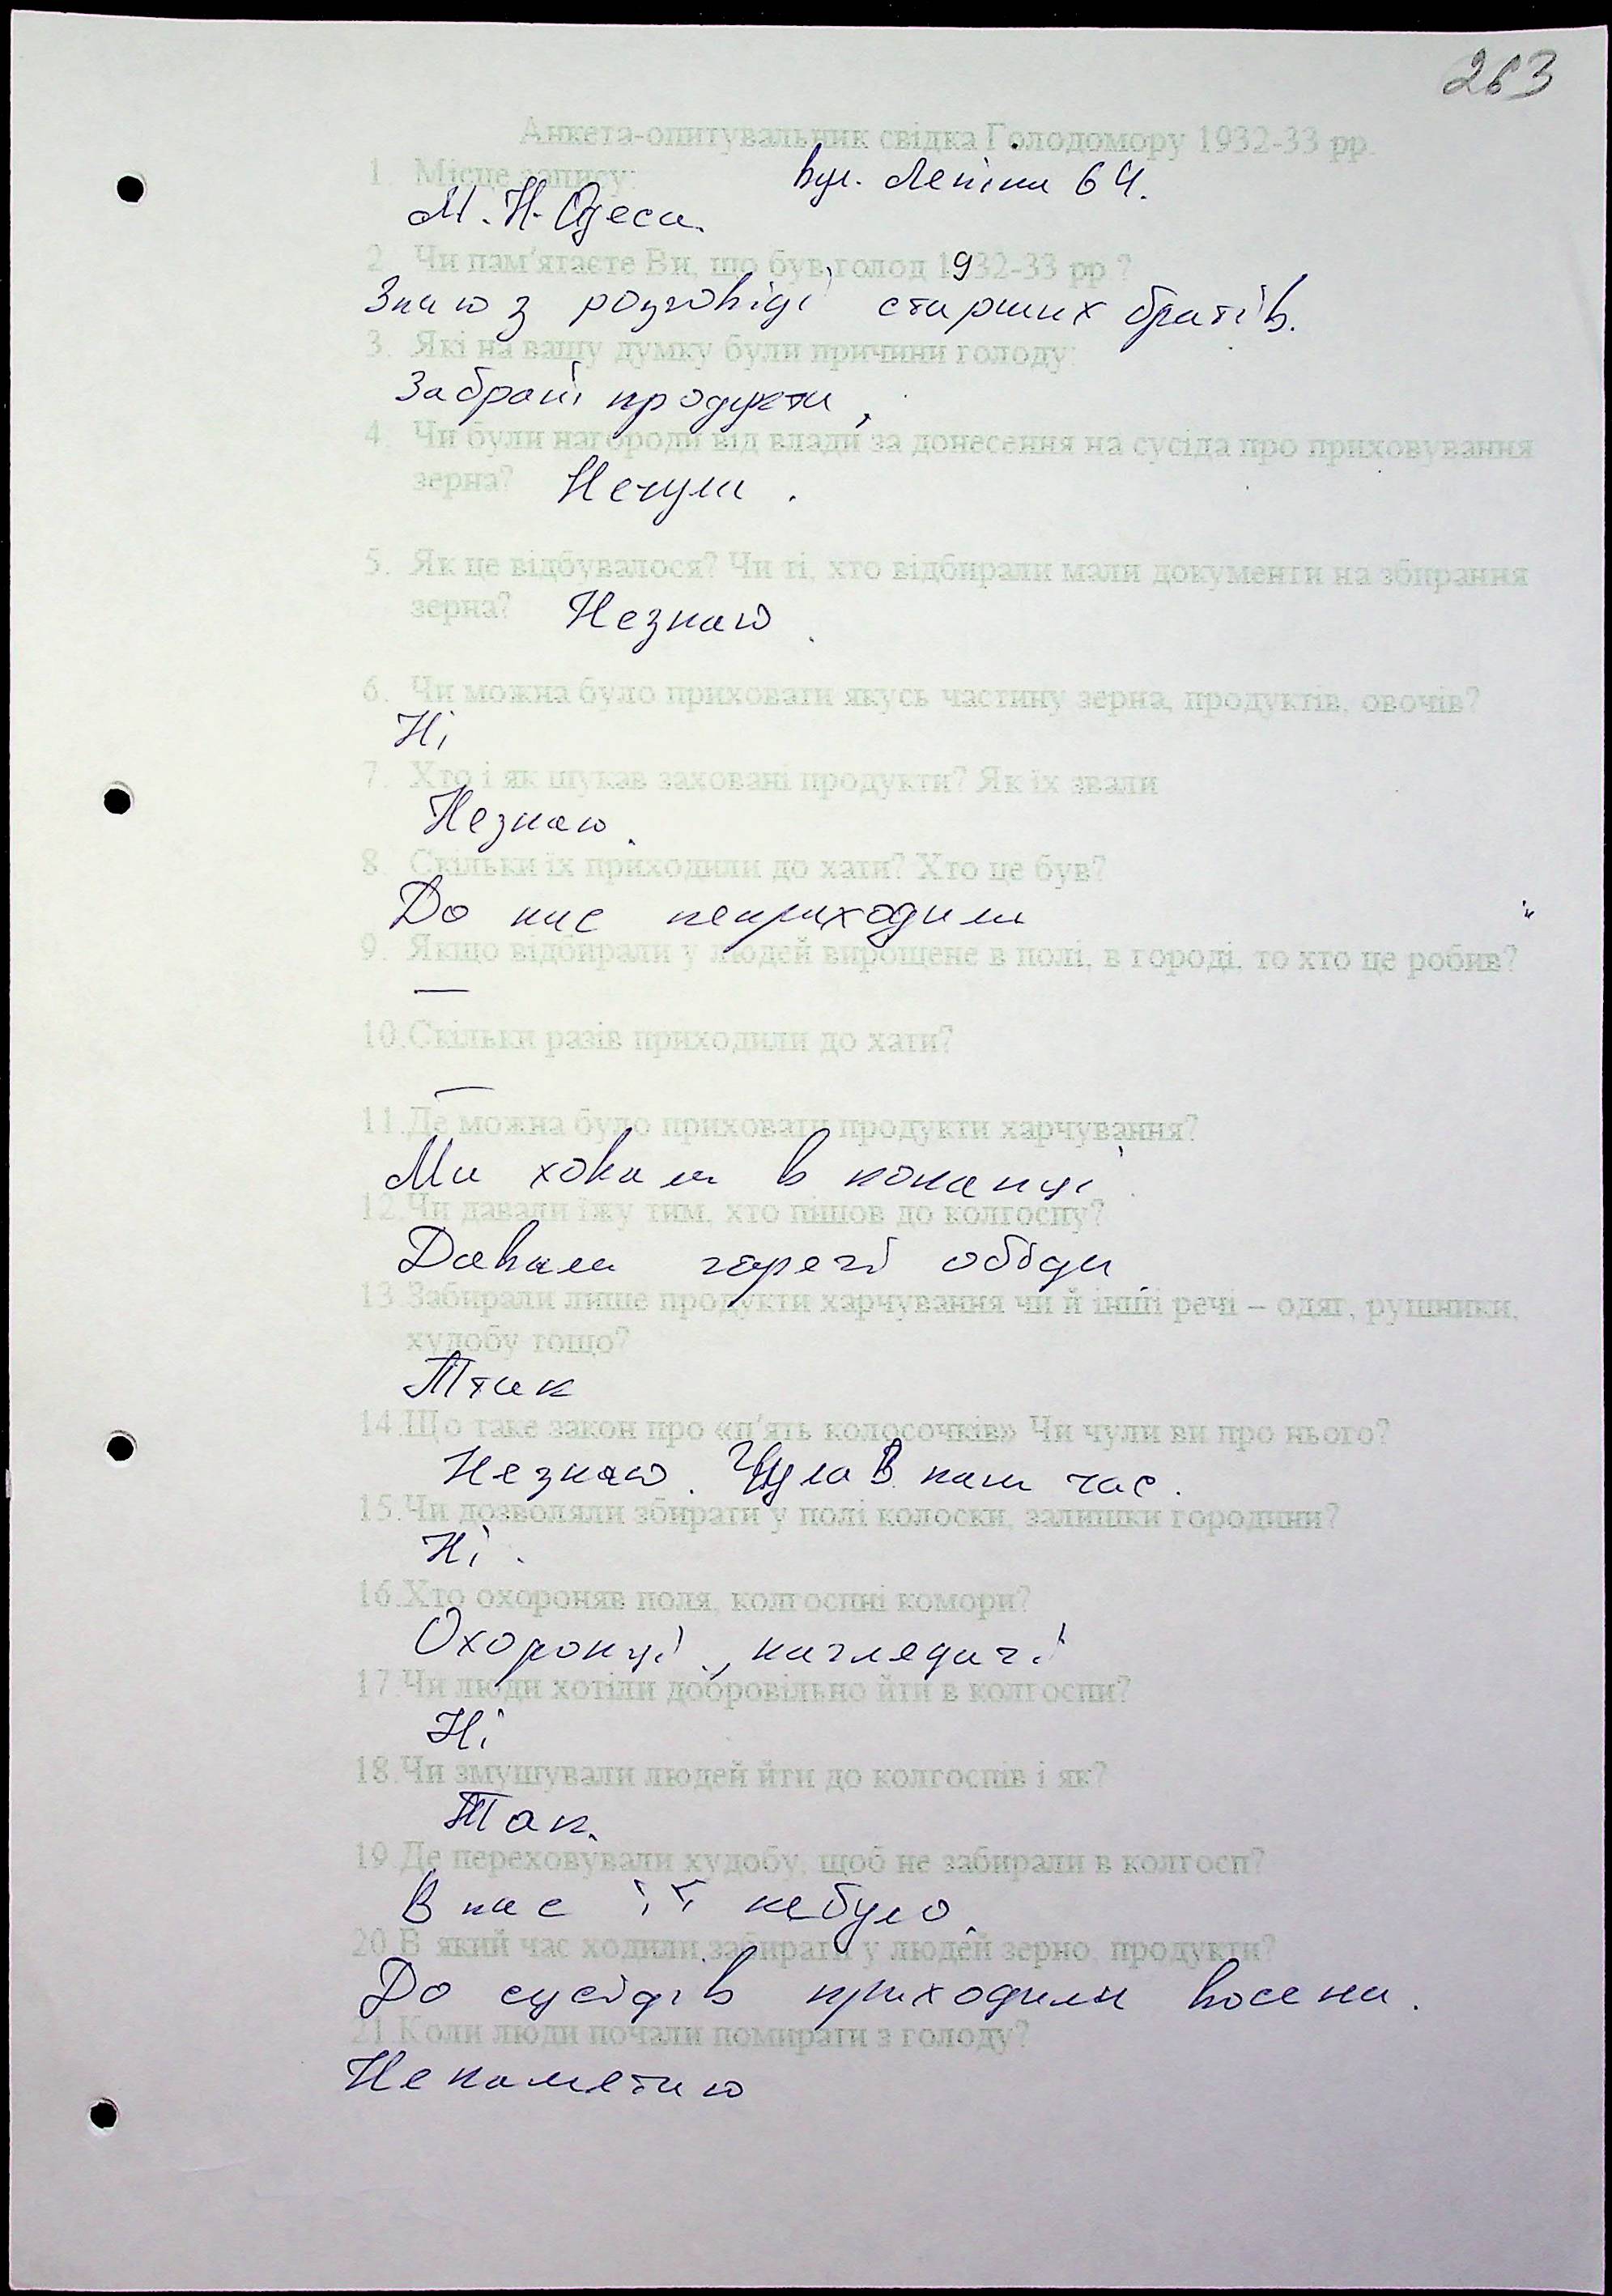 263
Анкета-опитувальник свідка Голодомору 1932-33 рр.
1. Місце запису: вул. Леніна 64.
М. Н-Одеса.
2. Чи пам'ятаєте Ви, що був голод 1932-33 рр.?
Знаю з розповіді старших братів.
3. Які на вашу думку були причини голоду:
Забрані продукти,
4. Чи були нагороди від влади за донесення на сусіда про приховування
зерна? Нечули.
5. Як це відбувалося? Чи ті, хто відбирали мали документи на збирання
зерна? Незнаю.
6. Чи можна було приховати якусь частину зерна, продуктів, овочів?
Ні
7. Хто і як шукав заховані продукти? Як їх звали
Незнаю.
8. Скільки їх приходили до хати? Хто це був?
До нас неприходили
9. Якщо відбирали у людей вирощене в полі, в городі, то хто це робив?
—
10. Скільки разів приходили до хати?
—
11. Де можна було приховати продукти харчування?
Ми ховали в копанці
12. Чи давали їжу тим, хто пішов до колгоспу?
Давали гарячі обіди
13. Забирали лише продукти харчування чи й інші речі – одяг, рушники,
худобу тощо?
Так
14. Що таке закон про «п'ять колосочків» Чи чули ви про нього?
Незнаю. Чула в наш час.
15. Чи дозволяли збирати у полі колоски, залишки городини?
Ні.
16. Хто охороняв поля, колгоспні комори?
Охоронці, наглядачі
17. Чи люди хотіли добровільно йти в колгоспи?
Ні
18. Чи змушували людей йти до колгоспів і як?
Так.
19. Де переховували худобу, щоб не забирали в колгосп?
В нас її небуло.
20. В який час ходили забирати у людей зерно, продукти?
До сусідів приходили восени.
21. Коли люди почали помирати з голоду?
Непамятаю